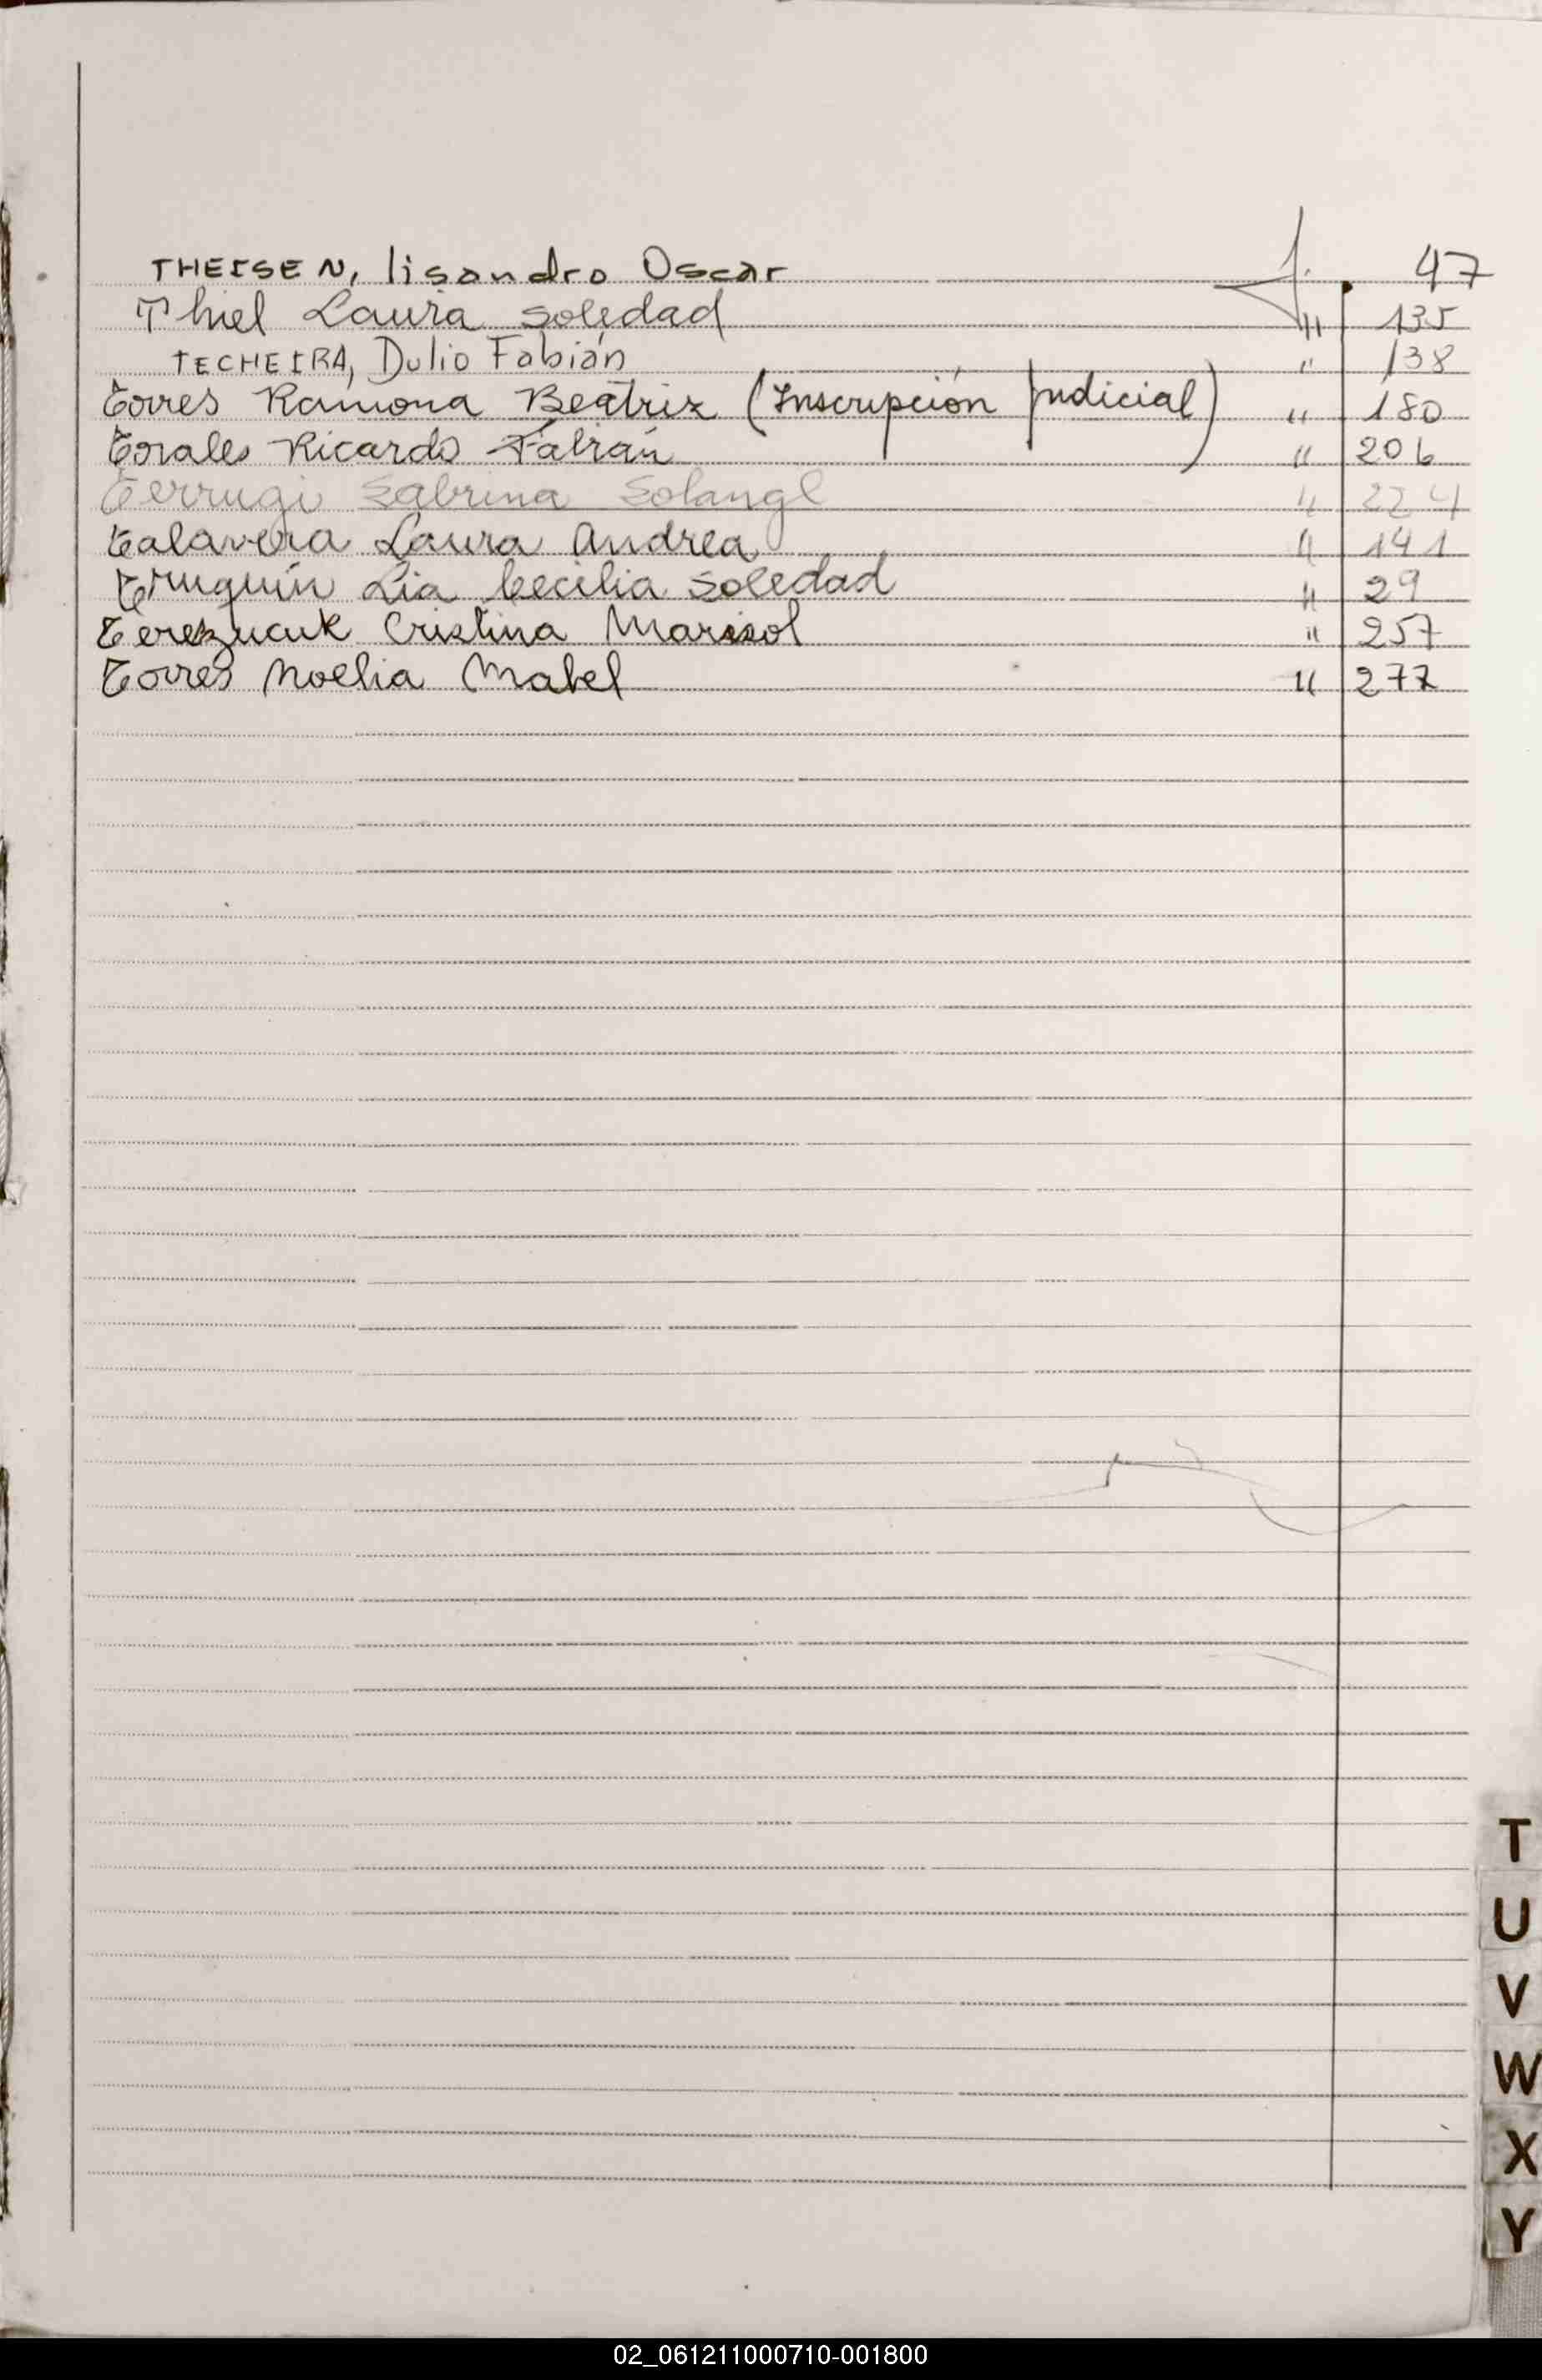 THEISEN, lisandro Oscar f. 47
Thiel Laura Soledad " 135
TECHEIRA, Dulio Fabián " 138
Torres Ramona Beatriz (Inscripción Judicial) " 180
Torales Ricardo Fabián " 206
Terrugi Sabrina Solange " 224
Talavera Laura Andrea " 141
Truquín Lia Cecilia Soledad " 29
Terezucuk Cristina Marisol " 257
Torres Noelia Mabel " 277
T
U
V
W
X
Y
02_061211000710-001800